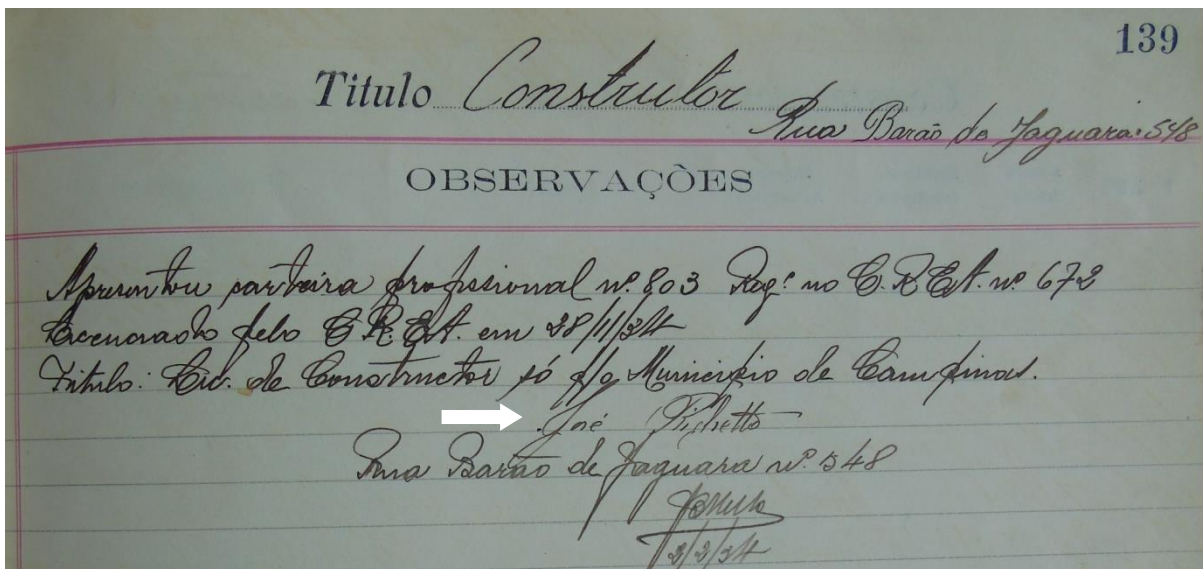 139
Titulo Construtor
Rua Barão de Jaguara: 548
OBSERVAÇÕES
Apresentou carteira profissional nº 803 Regº no C.R.E.A. nº 672
Licenciado pelo C.R.E.A. em 28/11/34
Titulo: Lic. de Constructor só p/o Municipio de Campinas.
José
Rua Barão de Jaguara nº 548